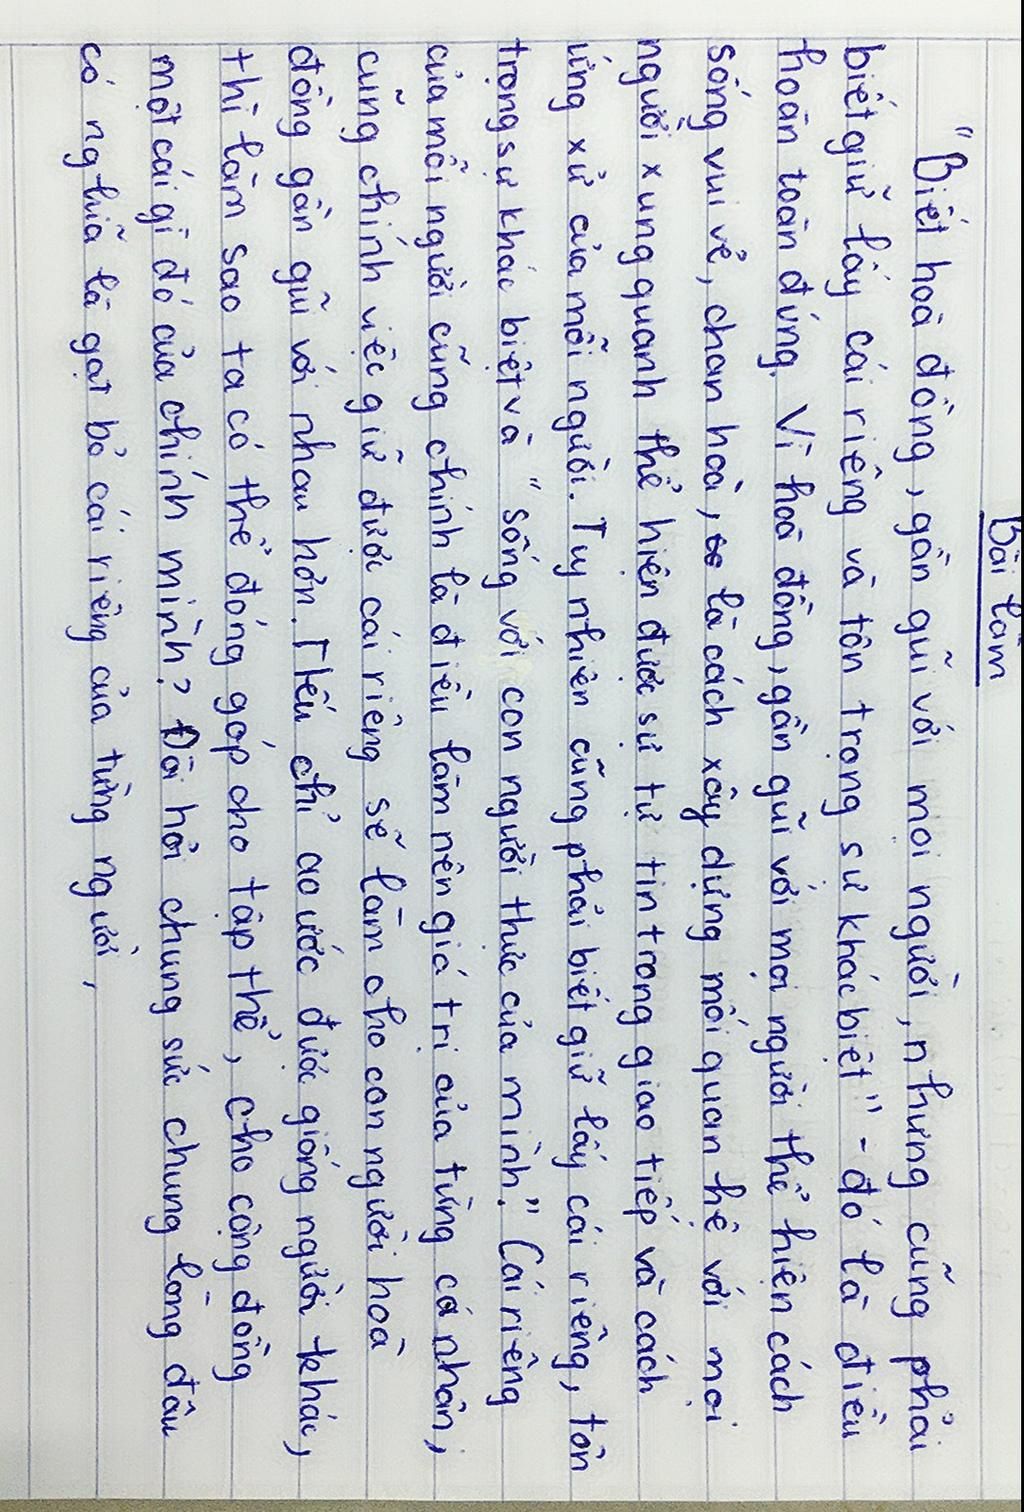 Bài làm
"Biết hoà đồng, gần gũi với mọi người, nhưng cũng phải
biết giữ lấy cái riêng và tôn trọng sự khác biệt" - đó là điều
hoàn toàn đúng. Vì hoà đồng, gần gũi với mọi người thể hiện cách
sống vui vẻ, chan hoà, là cách xây dựng mối quan hệ với mọi
người xung quanh thể hiện được sự tự tin trong giao tiếp và cách
ứng xử của mỗi người. Tuy nhiên cũng phải biết giữ lấy cái riêng, tôn
trọng sự khác biệt và "sống với con người thực của mình." Cái riêng
của mỗi người cũng chính là điều làm nên giá trị của từng cá nhân,
cũng chính việc giữ được cái riêng sẽ làm cho con người hoà
đồng gần gũi với nhau hơn. Nếu chỉ ao ước được giống người khác,
thì làm sao ta có thể đóng góp cho tập thể, cho cộng đồng
một cái gì đó của chính mình? Đòi hỏi chung sức chung lòng đâu
có nghĩa là gạt bỏ cái riêng của từng người,